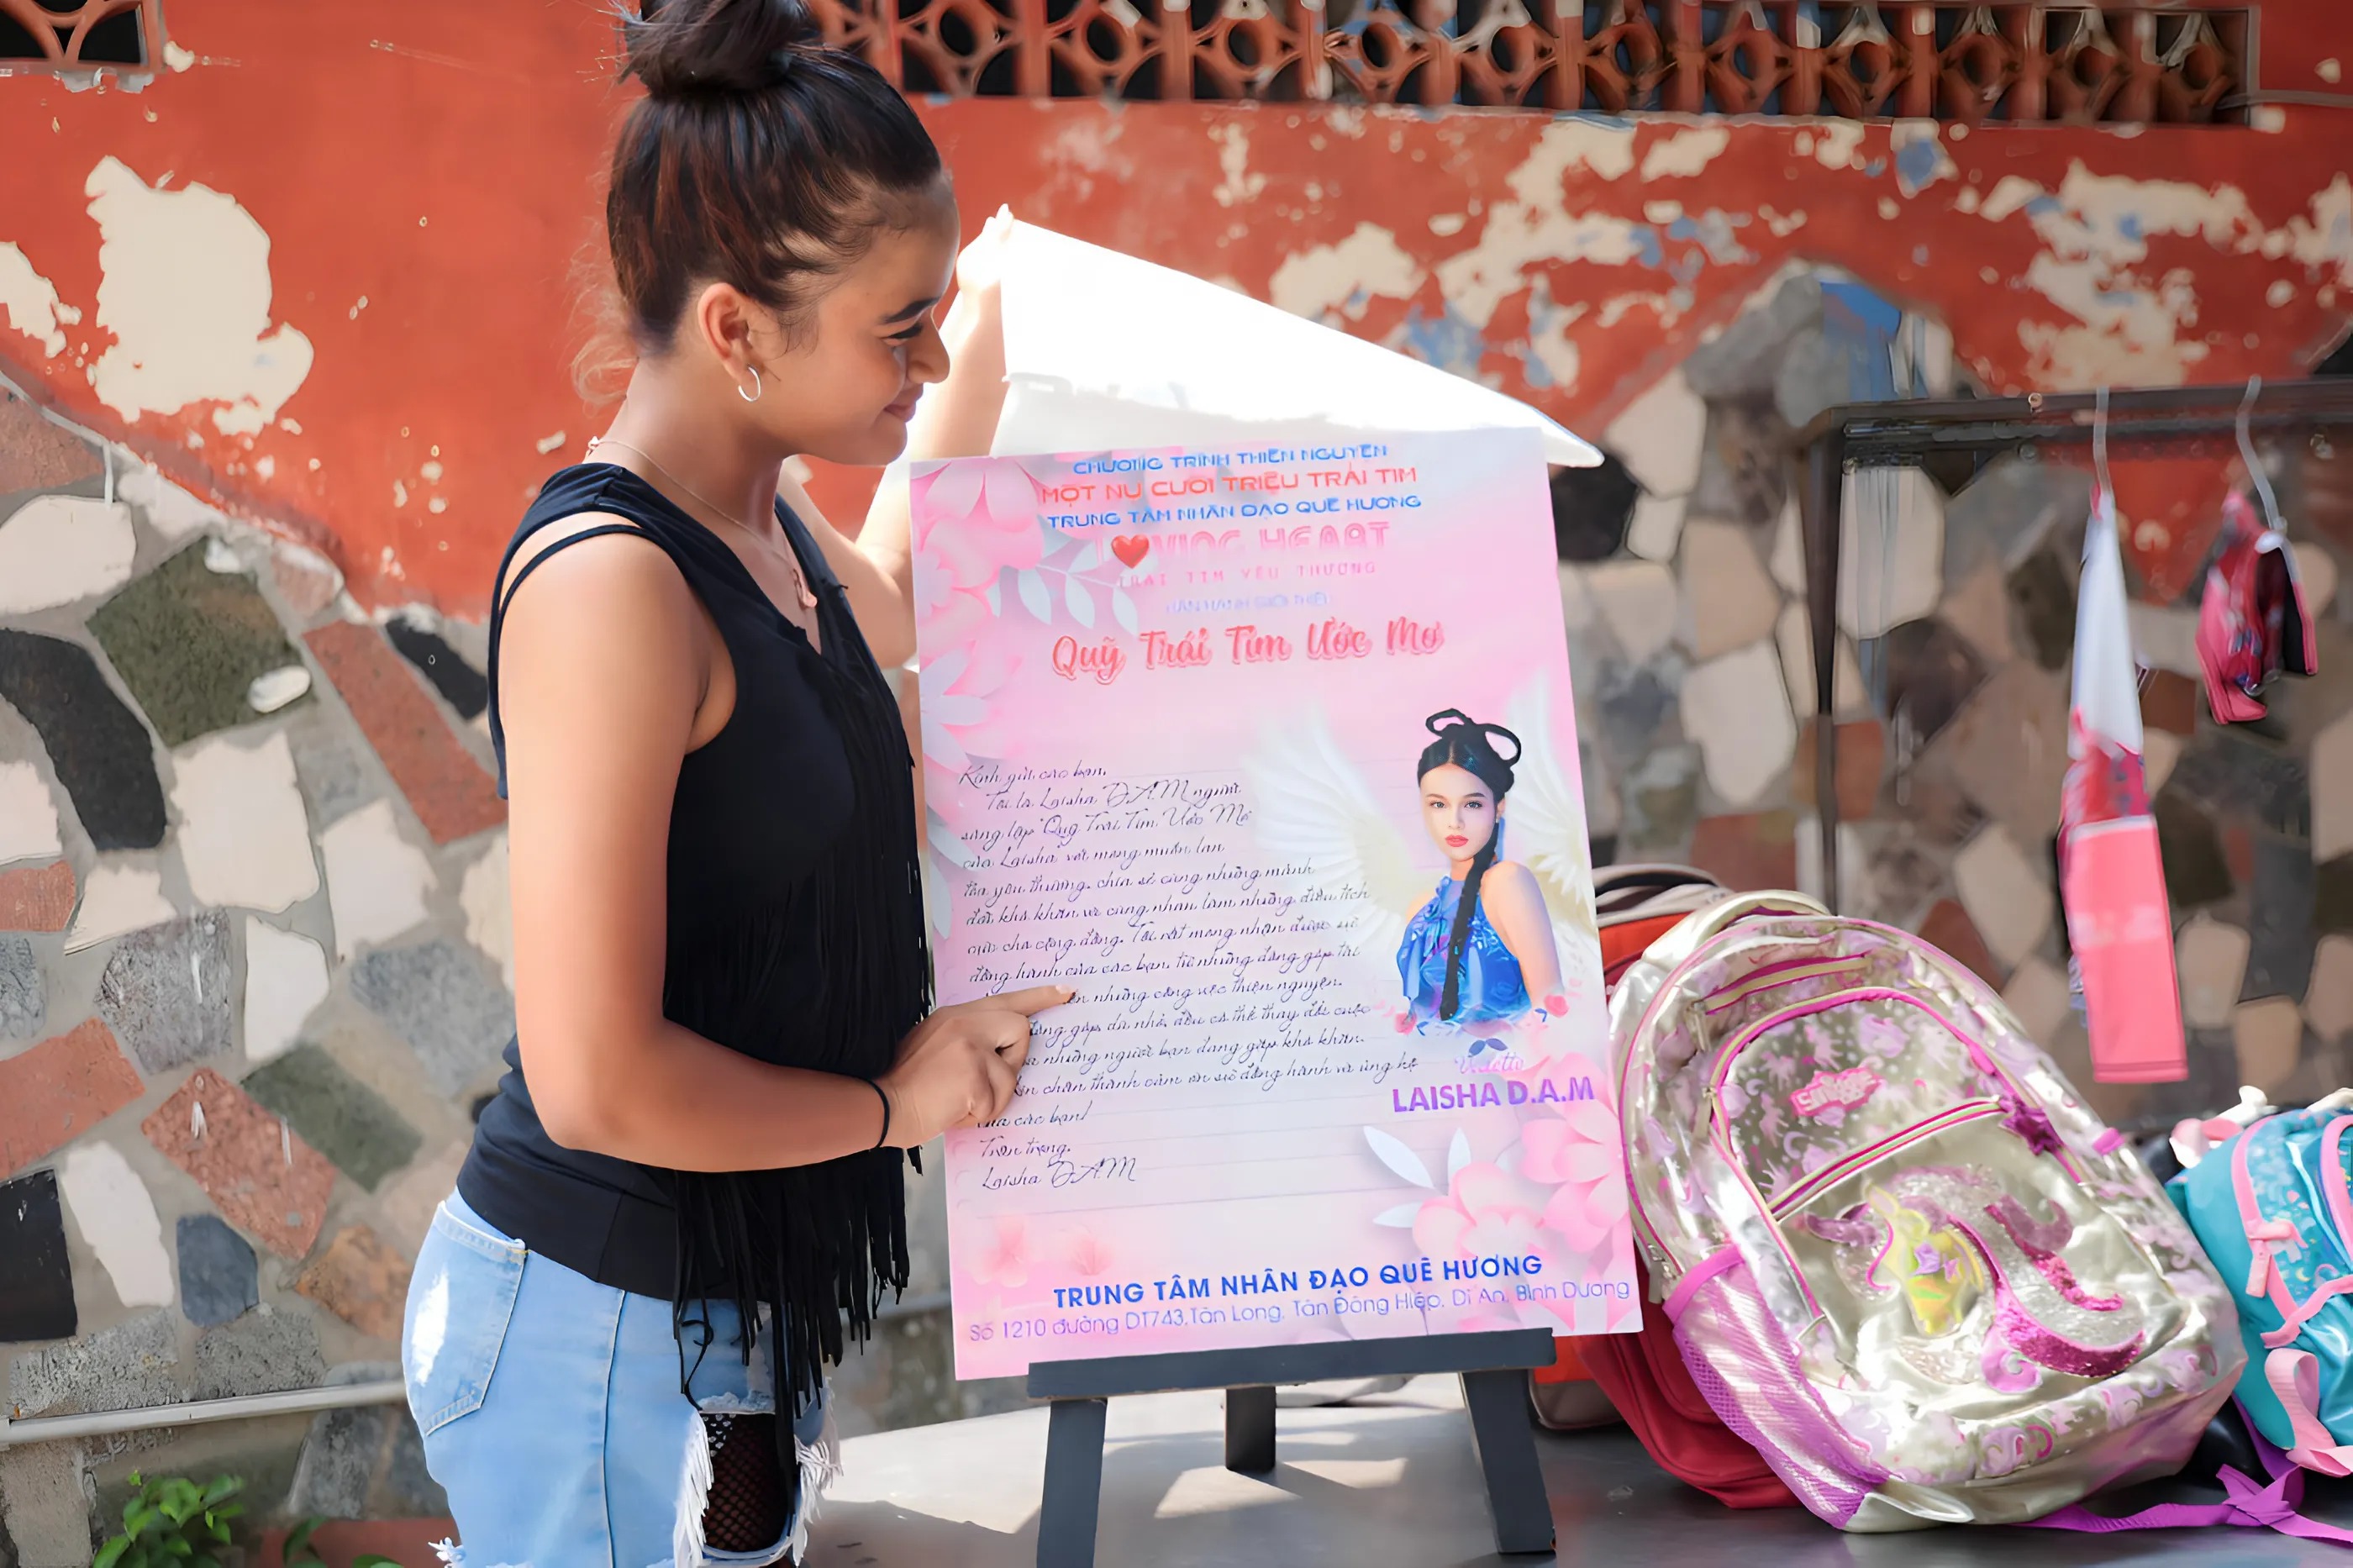 CHƯƠNG TRÌNH THIỆN NGUYỆN
MỘT NỤ CƯỜI TRIỆU TRÁI TIM
TRUNG TÂM NHÂN ĐẠO QUÊ HƯƠNG
L❤VING HEART
TRÁI TIM YÊU THƯƠNG
HÂN HẠNH GIỚI THIỆU
Quỹ Trái Tim Ước Mơ
Kính gửi các bạn,
Tôi là Laisha D.A.M người
sáng lập "Quỹ Trái Tim Ước Mơ"
của Laisha với mong muốn lan
tỏa yêu thương, chia sẻ cùng những mảnh
đời khó khăn và cùng nhau làm những điều tích
cực cho cộng đồng. Tôi rất mong nhận được sự
đồng hành của các bạn, từ những đóng góp tài
những công việc thiện nguyện.
đóng góp dù nhỏ, đều có thể thay đổi cuộc
những người bạn đang gặp khó khăn.
chân thành cảm ơn sự đồng hành và ủng hộ
của các bạn!
Trân trọng,
Laisha D.A.M
Vedette
LAISHA D.A.M
TRUNG TÂM NHÂN ĐẠO QUÊ HƯƠNG
Số 1210 đường DT743,Tân Long, Tân Đông Hiệp, Dĩ An, Bình Dương
smiggle